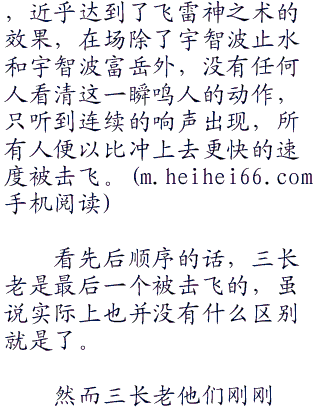 ，近乎达到了飞雷神之术的
效果，在场除了宇智波止水
和宇智波富岳外，没有任何
人看清这一瞬鸣人的动作，
只听到连续的响声出现，所
有人便以比冲上去更快的速
度被击飞。(m.heihei66.com
手机阅读)
看先后顺序的话，三长
老是最后一个被击飞的，虽
说实际上也并没有什么区别
就是了。
然而三长老他们刚刚